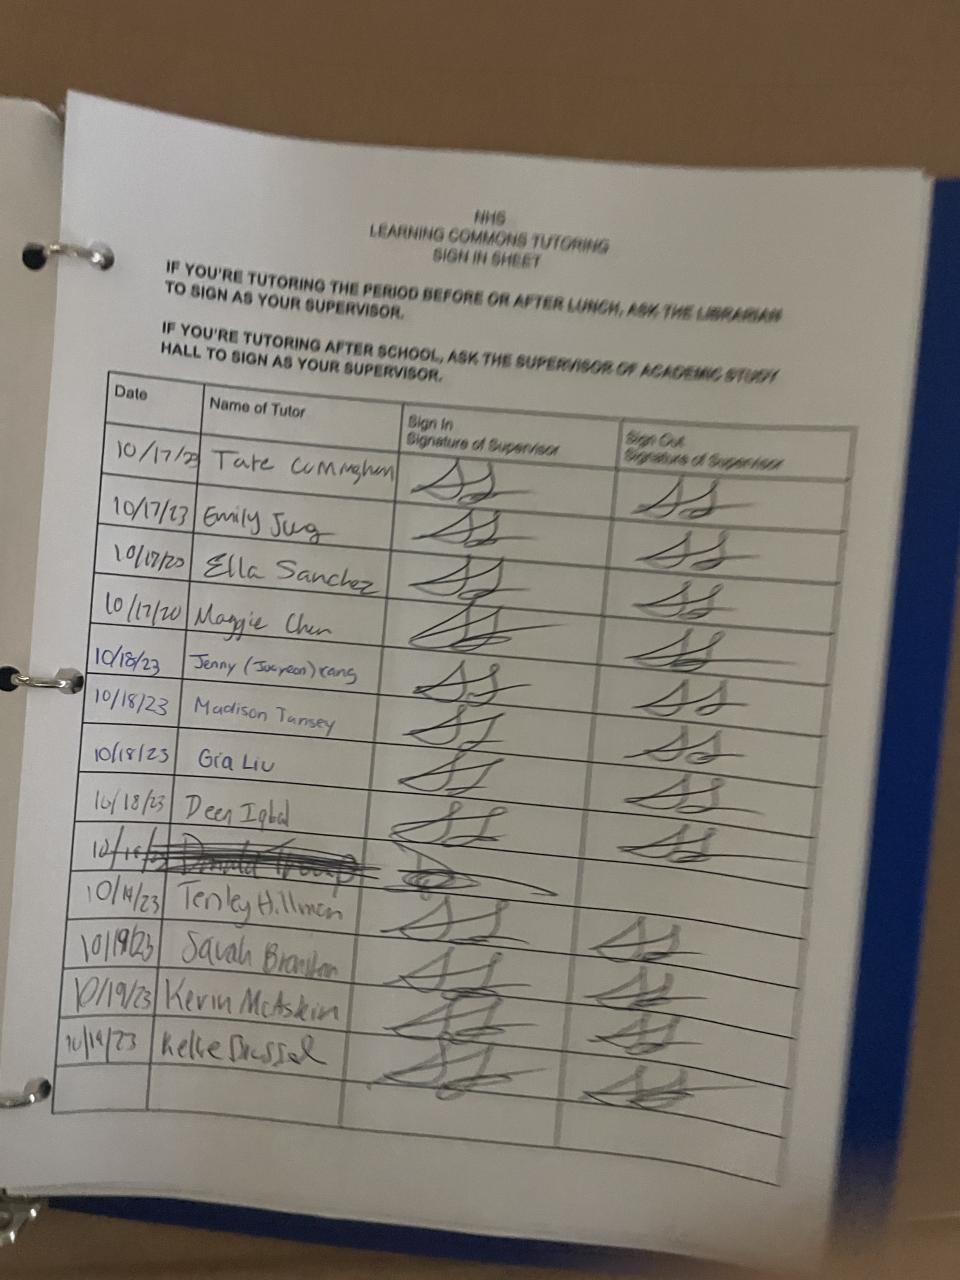 NHS
LEARNING COMMONS TUTORING
SIGN IN SHEET
IF YOU'RE TUTORING THE PERIOD BEFORE OR AFTER LUNCH, ASK THE LIBRARIAN
TO SIGN AS YOUR SUPERVISOR.
IF YOU'RE TUTORING AFTER SCHOOL, ASK THE SUPERVISOR OF ACADEMIC STUDY
HALL TO SIGN AS YOUR SUPERVISOR.
Date Name of Tutor Sign In Signature of Supervisor Sign Out Signature of Supervisor
10/17/23 Tate
10/17/23 Emily Jug
10/17/20 Ella Sanchez
10/17/20 Maggie Chen
10/18/23 Jenny (Jooyeon) Kang
10/18/23 Madison Tansey
10/18/23 Gia Liu
10/18/23 Deen Iqbal
10/19/23 Tenley Hillman
10/19/23 Sarah
10/19/23 Kevin McAskin
10/19/23